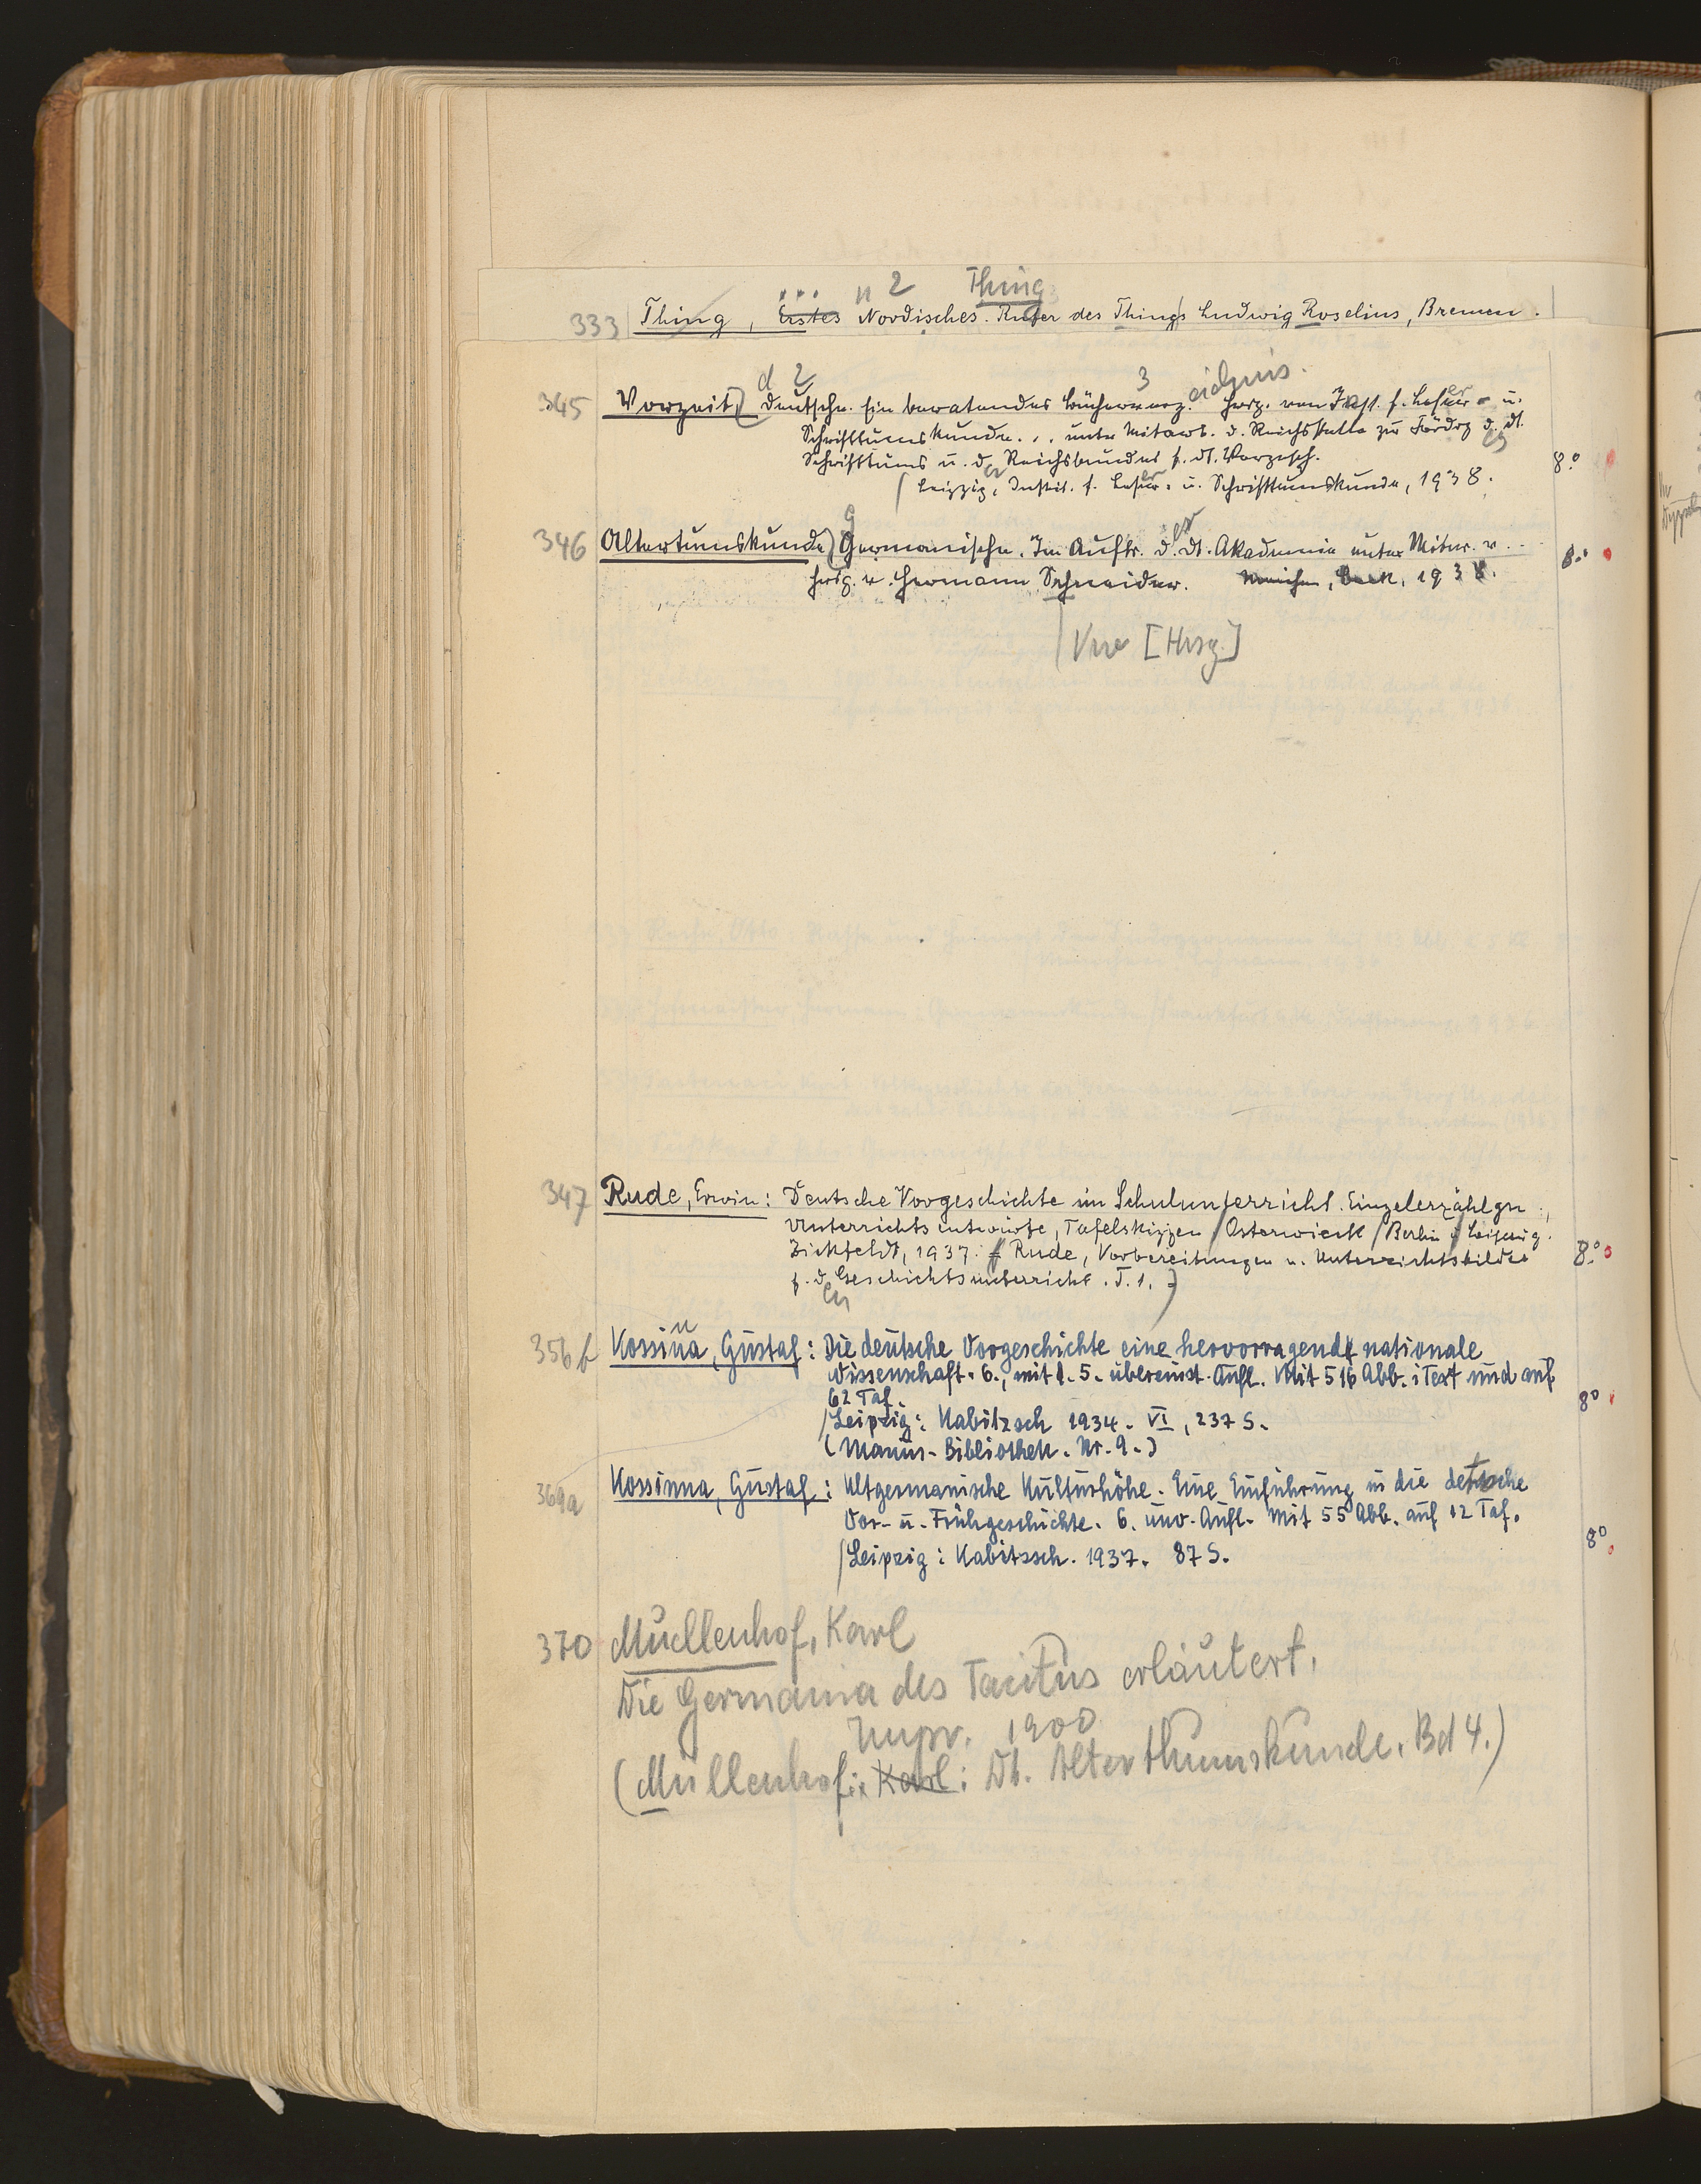 ... n 2 Thing
333 Thing, Erstes Nordisches. Rufer des Things Ludwig Roselius, Bremen.
d 2 3 eichnis.
345 Vorzeit, Deutsche. Ein beratendes Bücherverz. Hrsg. vom Inst. f. Leser- u.
Schrifttumskunde . . . unter Mitarb. d. Reichsstelle zur Fördrg d. dt.
Schrifttums u. d. Reichsbundes f. dt. Vorgesch.
8°
Leipzig, Instit. f. Leser- u. Schrifttumskunde, 1938.
g
346 Altertumskunde, Germanische. Im Auftr. d. dt. Akademie unter Mitw. v. . .
8°
hrsg. v. Hermann Schneider. München, Beck, 1938.
[Hrsg.]
347 Rude, Erwin: Deutsche Vorgeschichte im Schulunterricht. Einzelerzählgn,
Unterrichtsentwürfe, Tafelskizzen / Osterwieck / Berlin / Leipzig.
Zickfeldt, 1937. (Rude, Vorbereitungen u. Unterrichtsbilder
8°
f. d. Geschichtsunterricht. T. 1.)
en
n
356 b Kossina, Gustaf: Die deutsche Vorgeschichte eine hervorragende nationale
Wissenschaft. 6., mit d. 5. übereinst. Aufl. Mit 516 Abb. i Text und auf
62 Taf.
8°
/Leipzig: Kabitzsch 1934. VI, 237 S.
(Mannus-Bibliothek. Nr. 9.)
369a Kossinna, Gustaf: Altgermanische Kulturhöhe. Eine Einführung in die detsche
Vor- u. Frühgeschichte. 6. unv. Aufl. Mit 55 Abb. auf 12 Taf.
8°
/Leipzig: Kabitzsch. 1937. 87 S.
370 Müllenhof, Karl
Die Germania des Tacitus erläutert.
1900
(Müllenhof: Karl: Dt. Alterthumskunde, Bd 4.)